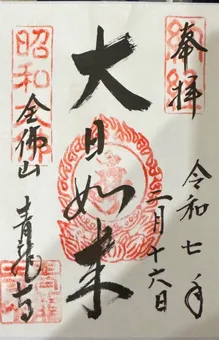 奉拝
令和七年
二月十六日
大日如来
昭和大佛
全佛山
青龍寺